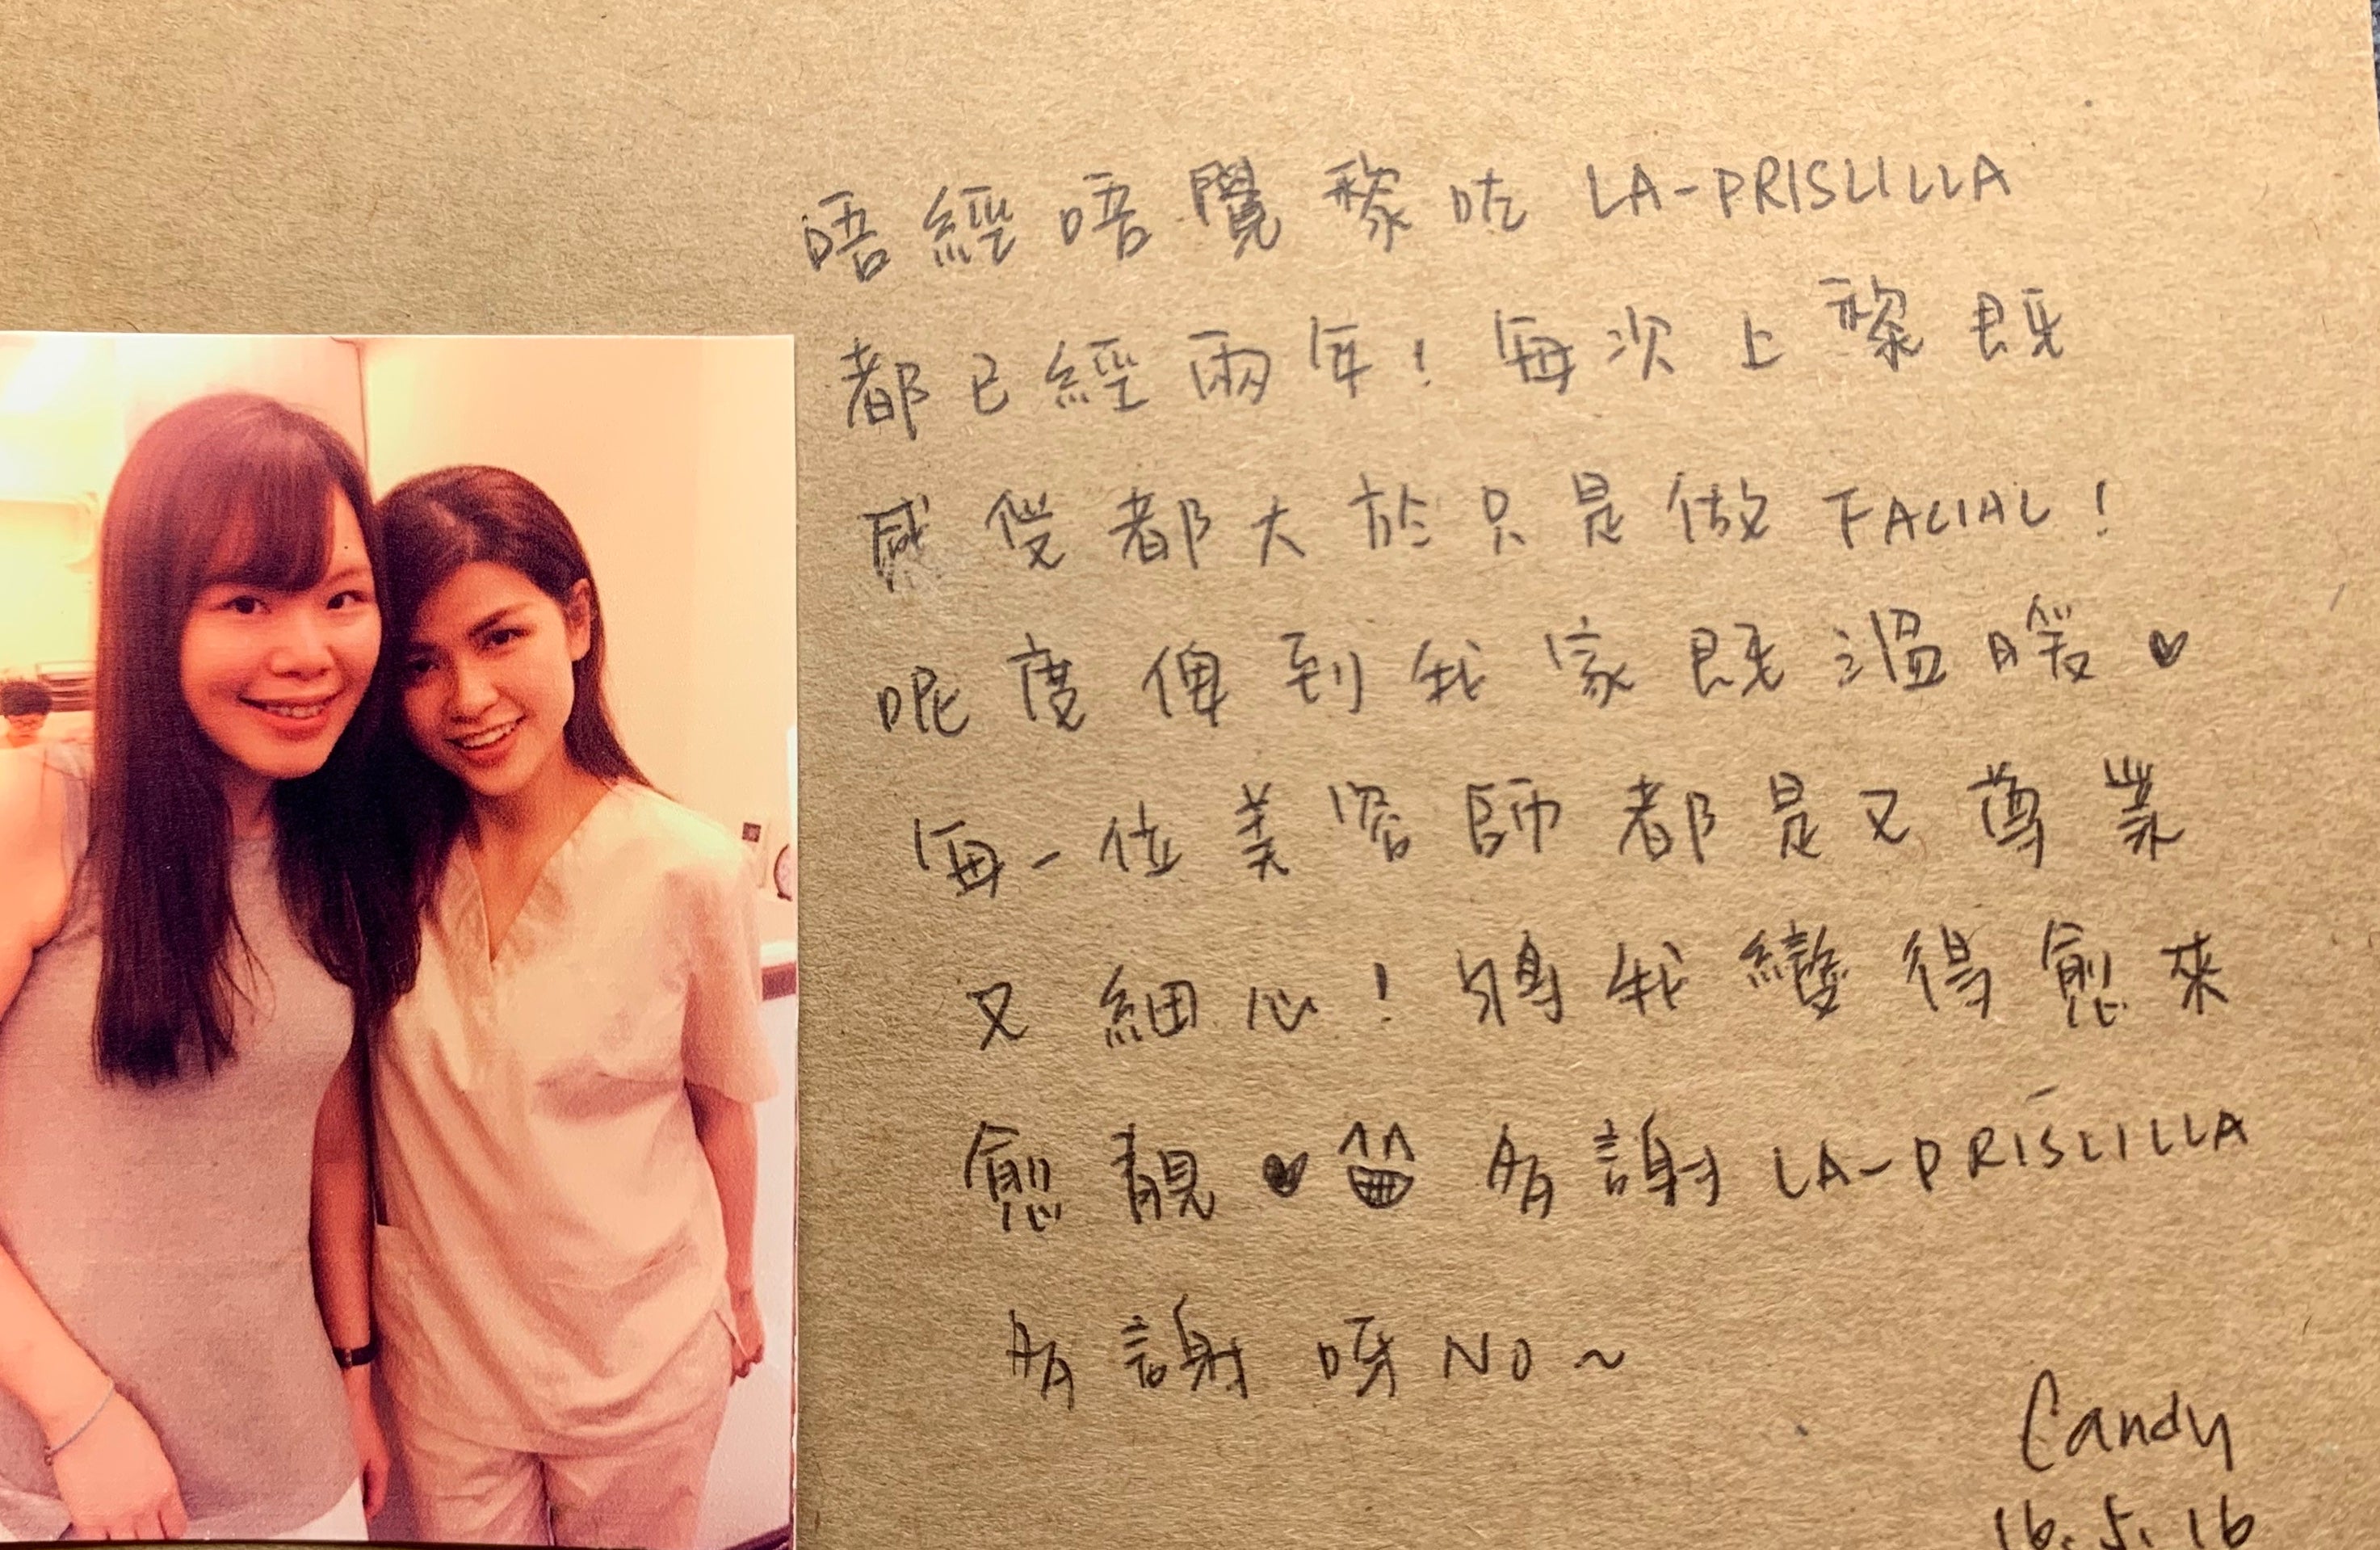 唔經唔覺黎咗 LA-PRISLILLA
都已經兩年！每次上黎既
感受都大於只是做 FACIAL！
呢度俾到我家既溫暖♥
每一位美容師都是又尊業
又細心！將我變得愈來
愈靚♥ 多謝 LA-PRISLILLA
多謝呀 NO~
Candy
16.5.16